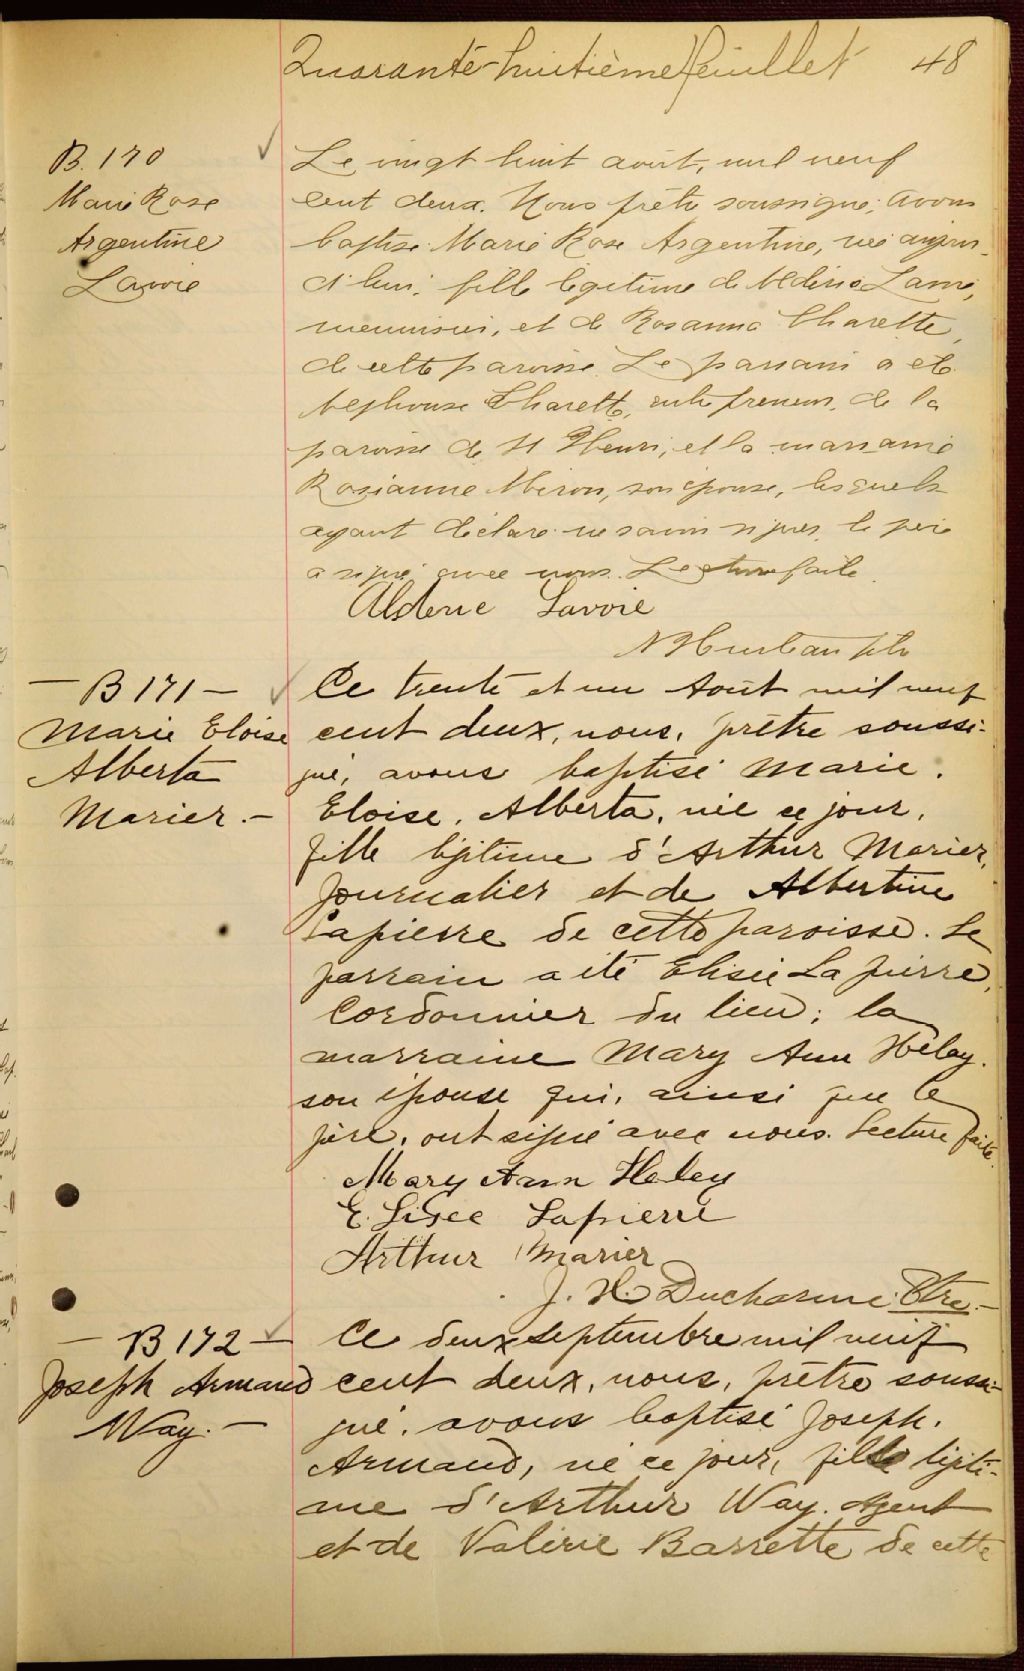 Quarante-huitième feuillet 48
B. 170
Marie Rose
Argentine
Lavoie
Le vingt huit août, mil neuf
cent deux. Nous prêtre soussigné, avons
baptisé Marie Rose Argentine, née aujour-
d'hui, fille légitime de Aldéric Lavoie,
menuisier, et de Rosanna Charette,
de cette paroisse. Le parrain a été
Alphonse Charette, entrepreneur, de la
paroisse de St Henri, et la marraine
Rosianne Miron, son épouse, lesquels
ayant déclaré ne savoir signer, le père
a signé avec nous. Lecture faite.
Alderic Lavoie
ptre
— B 171 —
Marie Eloise
Alberta
Marier. —
Ce trente et un Août mil neuf
cent deux, nous, prêtre soussi-
gné, avons baptisé Marie.
Eloise. Alberta, née ce jour,
fille légitime d'Arthur Marier,
journalier et de Albertine
Lapierre de cette paroisse. Le
parrain a été Elisée Lapierre,
Cordonnier du lieu; la
marraine Mary Ann Heley.
son épouse qui, ainsi que le
père, ont signé avec nous. Lecture faite.
Mary Ann Heley
E. Lisée Lapierre
Arthur Marier
J. H. Ducharme Ptre. —
— B 172 —
Joseph Armand
Way. —
Ce deux septembre mil neuf
cent deux, nous, prêtre soussi-
gné, avons baptisé Joseph.
Armand, né ce jour, fils légiti-
me d'Arthur Way. Agent
et de Valérie Barrette de cette